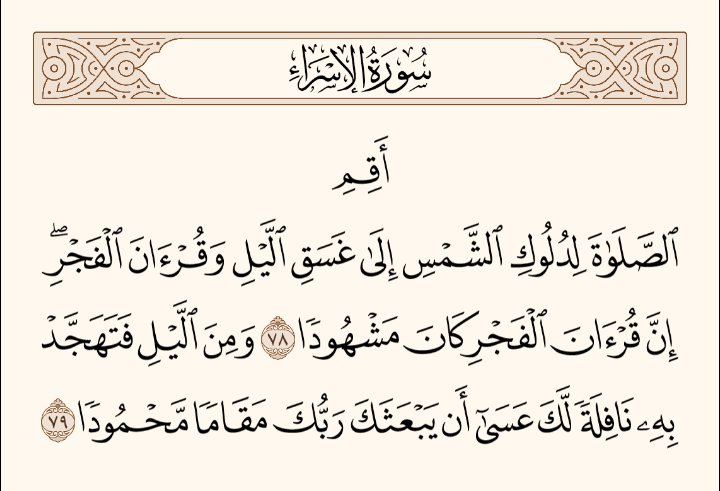 سُورَةُ الإِسۡرَاءِ
أَقِمِ
ٱلصَّلَوٰةَ لِدُلُوكِ ٱلشَّمۡسِ إِلَىٰ غَسَقِ ٱلَّيۡلِ وَقُرۡءَانَ ٱلۡفَجۡرِۖ
إِنَّ قُرۡءَانَ ٱلۡفَجۡرِ كَانَ مَشۡهُودٗا ٧٨ وَمِنَ ٱلَّيۡلِ فَتَهَجَّدۡ
بِهِۦ نَافِلَةٗ لَّكَ عَسَىٰٓ أَن يَبۡعَثَكَ رَبُّكَ مَقَامٗا مَّحۡمُودٗا ٧٩